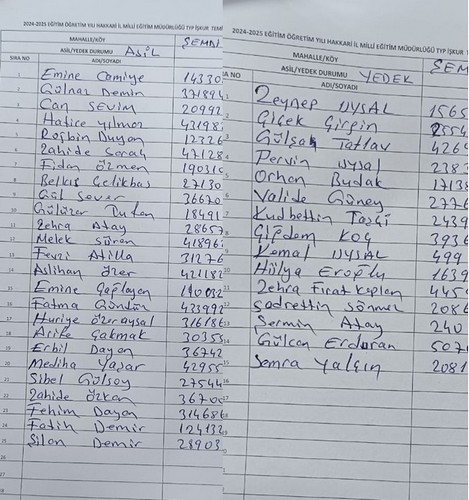 2024-2025 EĞİTİM ÖĞRETİM YILI HAKKARİ İL MİLLİ EĞİTİM MÜDÜRLÜĞÜ TYP İŞKUR TEMİ
MAHALLE/KÖY ŞEMDİ
ASİL/YEDEK DURUMU ASİL
SIRA NO ADI/SOYADI
Emine Camiye 14330
2 Gülnaz Demin 37189
3 Can SEVİM 20992
4 Hatice Yılmaz 43198
5 Duyan 12326
6 Zahide 47128
7 Fidan Özmen 19031
8 Belkıs Çelikbaş 27130
9 Gül Sever 36670
10 Gülüzer 18491
11 Zehra Atay 28657
12 Melek 41896
13 Fevzi Atilla 31276
14 Aslıhan Özer 421182
15 Emine 140032
16 Fatma Gündür 433992
17 Huriye Özeraysal 316186
18 Arife Çakmak 30355
19 Erbil Dayan 36742
20 Mediha Yaşar 42955
21 Sibel Gülsoy 27544
22 Zahide Özkan 36700
23 Fehim Dayan 314686
24 Fatih Demir 124132
25 Silan Demir 28903
26
27
2024-2025 EĞİTİM ÖĞRETİM YILI HAKKARİ İL MİLLİ EĞİTİM MÜDÜRLÜĞÜ TYP İŞKUR
MAHALLE/KÖY ŞEM
ASİL/YEDEK DURUMU YEDEK
A NO ADI/SOYADI
Zeynep UYSAL 1565
Çiçek Girgin 2554
Gülşah Tatlav 4269
Pervin Uysal 238
Orhan Budak 1713
Valide Güney 2776
Kudbettin Taşçı 2439
Çiğdem KOÇ 3936
Kemal UYSAL 499
Hülya Eroğlu 1639
Zehra Fırat Kaplan 445
Sadrettin Sönmez 2086
Sermin Atay 240
Gülcan Erduran 507
Semra Yalçın 2081